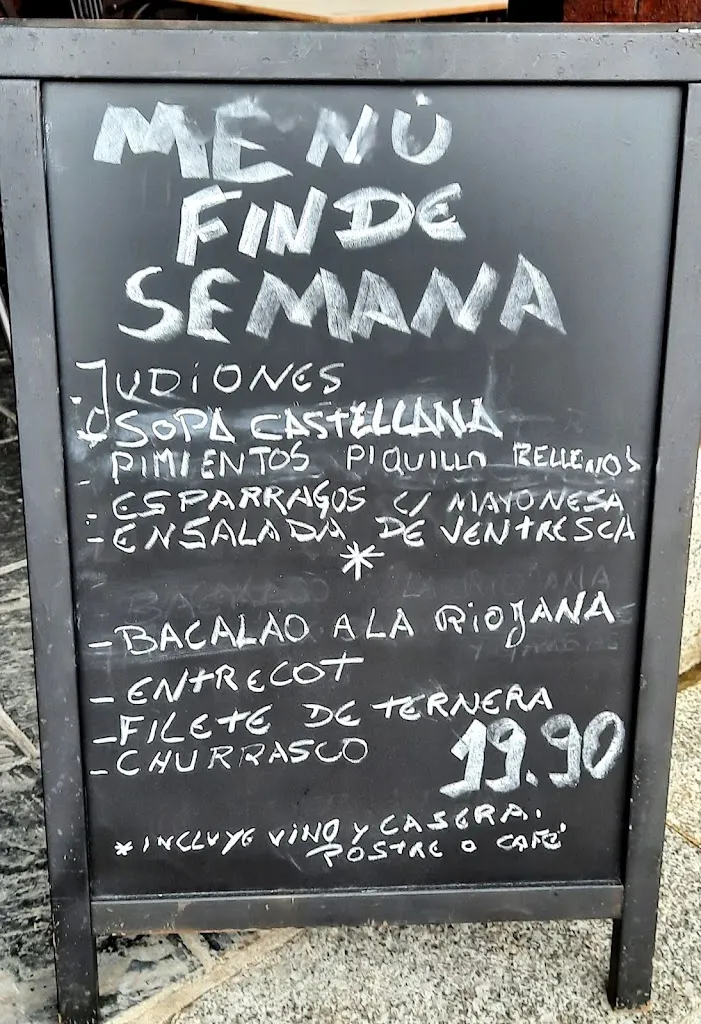 MENÚ
FIN DE
SEMANA
- JUDIONES
- SOPA CASTELLANA
- PIMIENTOS PIQUILLO RELLENOS
- ESPARRAGOS C/ MAYONESA
- ENSALADA DE VENTRESCA
*
- BACALAO A LA RIOJANA
- ENTRECOT
- FILETE DE TERNERA
- CHURRASCO
19.90
* INCLUYE VINO Y CASERA.
POSTRE O CAFÉ